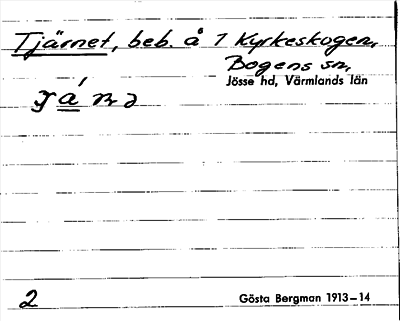 Tjärnet, beb. å 1 Kyrkeskogen,
Bogens sn,
Jösse hd, Värmlands län
2
Gösta Bergman 1913–14